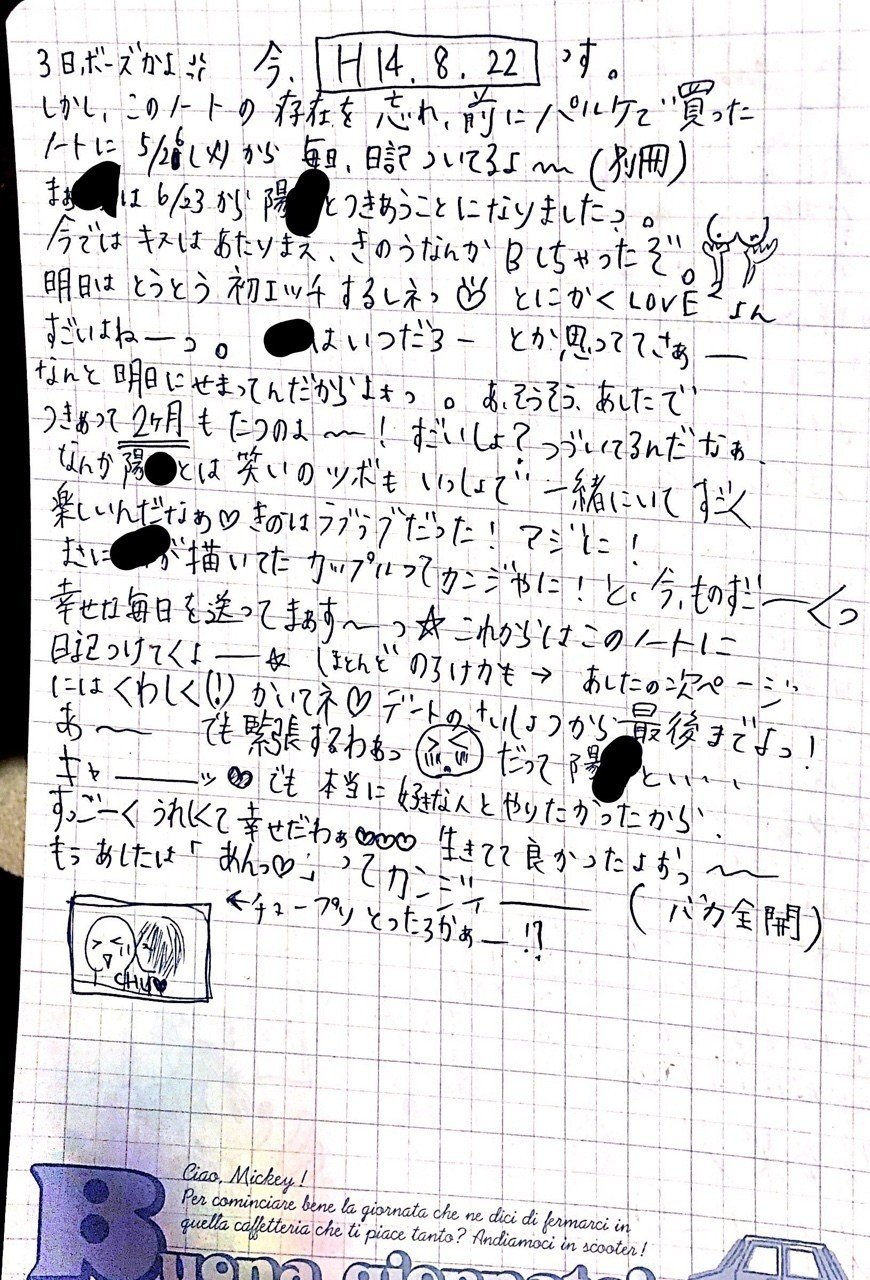 3日ボーズかよ 今、 H14.8.22 っす。
しかし、このノートの存在を忘れ、前にパルケで買った
ノートに 5/26(火)から 毎日、日記ついてるよ〜(別冊)
まぁ は 6/23から 陽 とつきあうことになりましたっ。
今では キスは あたりまえ、きのうなんか Bしちゃったぞ。
明日は とうとう 初エッチするしネっ とにかく LOVE²よん
すごいよねーっ。 はいつだろー とか思っててさぁー
なんと 明日にせまってんだからよォっ。 あ、そうそう、あしたで
つきあって 2ヶ月も たつのよ〜! すごいしょ? つづいてるんだなぁ、
なんか 陽 とは 笑いのツボも いっしょで 一緒にいて すごく
楽しいんだなぁ♡ きのはラブラブだった! マジに!
まさに が描いてた カップルってカンジやに! と、今、ものすごーくっ
幸せな毎日を送ってまぁす〜っ☆ これからはこのノートに
日記つけてくよー☆ ほとんど のろけかも→ あしたの次ページ
には くわしく(!) かいてネ♡ デートの さいしょっから 最後までよっ!
あ〜 でも 緊張するわぁっ だって 陽 と、、、
キャーッ♡ でも 本当に 好きな人と やりたかったから、
すっごーく うれしくて 幸せだわぁ♡♡♡ 生きてて 良かったよぉっ〜
もう あしたは「あんっ♡」ってカンジィー (バカ全開)
←チュープリ とったろかぁー!?
CHU♥
Ciao, Mickey!
Per cominciare bene la giornata che ne dici di fermarci in
quella caffetteria che ti piace tanto? Andiamoci in scooter!
Buona giornata!